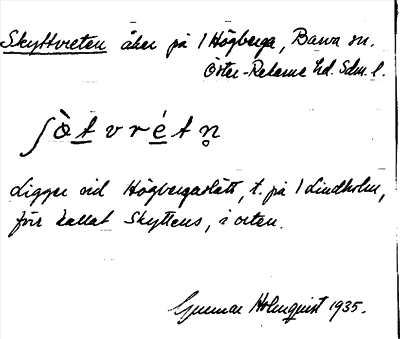 Skyttvreten åker på 1 Högberga, Barva sn.
Öster-Rekarne hd. Sdm. l.
ʃɵ̀t v r é t n̥
Ligger vid Högbergaslätt, t. på 1 Lindholm,
förr kallat Skyttens, i orten.
Gunnar Holmquist 1935.